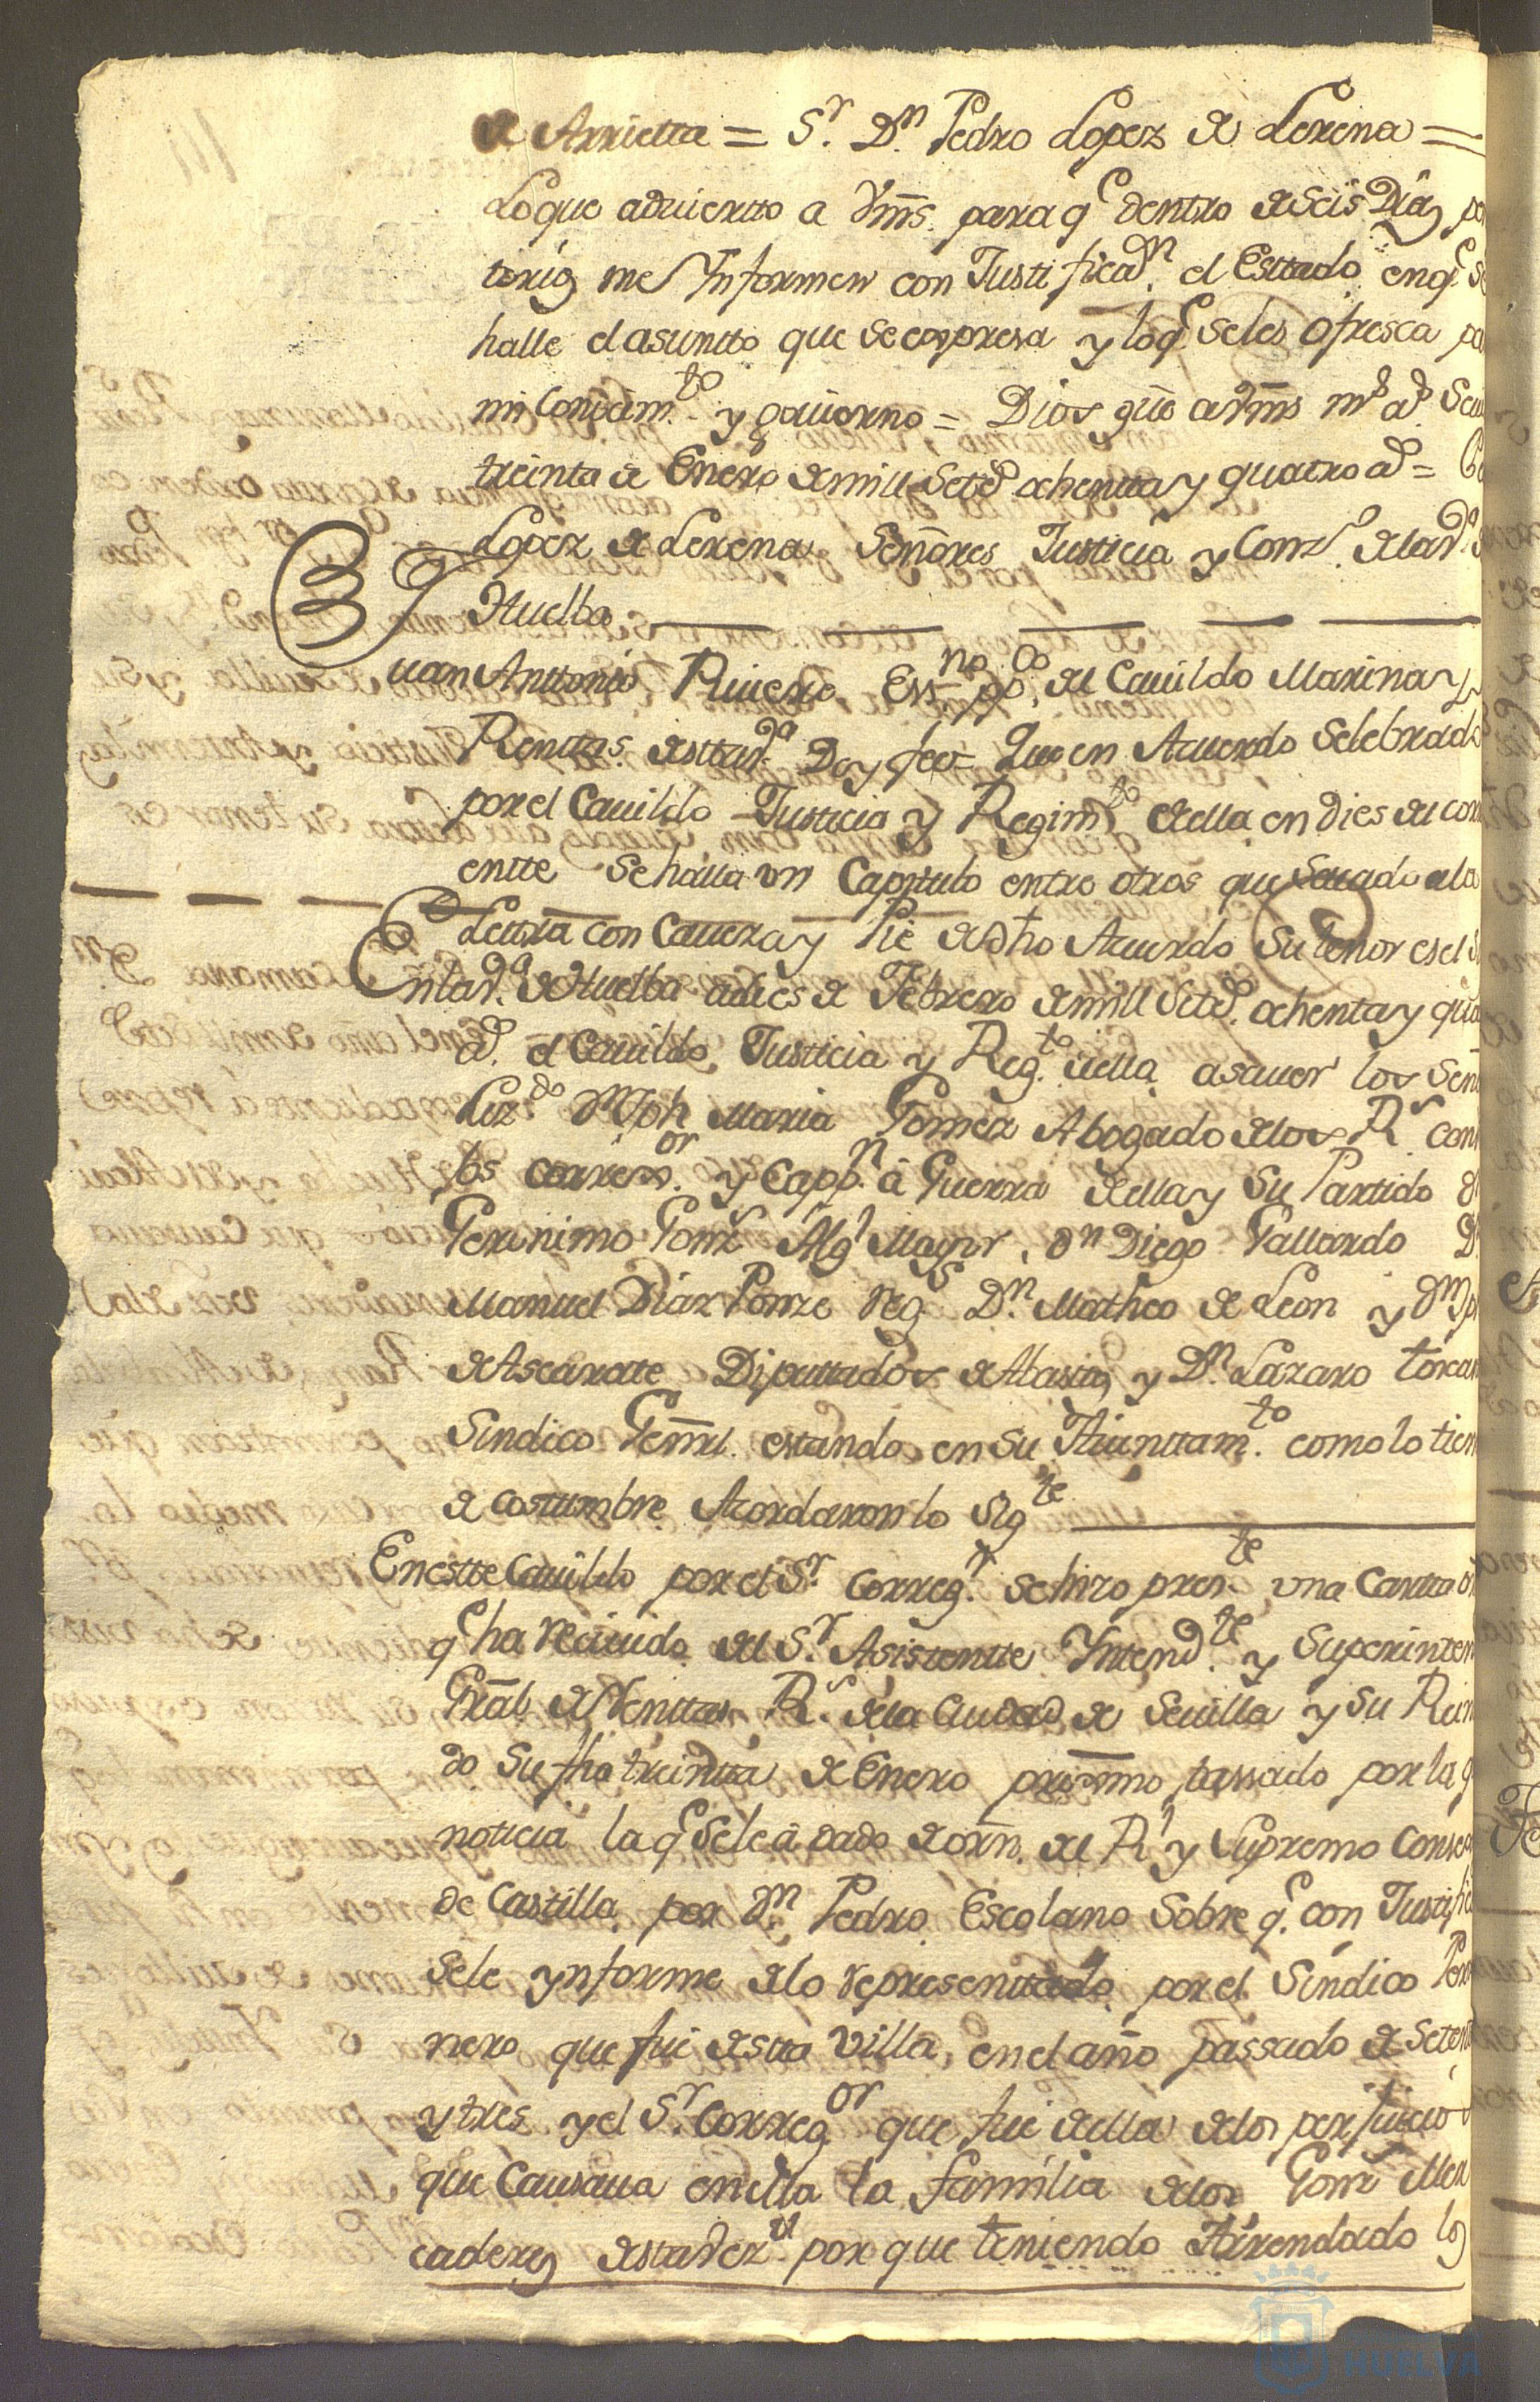 de Arrietta = S.r D.n Pedro Lopez de Lerena =
Lo que advierto a Vms. para q.e dentro de seis Dias pe
torios me Ynformen con Justificaz.n el Esttado en q.e se
halle el asuntto que se expresa y lo q.e se les ofresca pa
mi Conocim.to y govierno = Dios gue a Vms m.s a.s Sevi
treinta de Enero de mill Setez.s ochentta y quatro a.s =
Lopez de Lerena Señores Justicia y Conz.o de la V.a
Huelba
Juan Anttonio Rivero Ess.no pp.co del Cavildo Marina y
Renttas de estta V.a Doy fee = Que en Acuerdo Selebrado
por el Cavildo Justicia y Regim.to de ella en dies del corri
entte Se halla vn Capitulo entre otros que Sacado a la
Letra con Caveza y Pie de dho Acuerdo Su tenor es el
En la V.a de Huelba a dies de Febrero de mill Setez.s ochenta y qua
a.s el Cavildo, Justicia y Reg.to de ella asaver los Señ
Liz.do Dn Joh Maria Gomez Abogado de los R.s con
jos correx.or y Capp.n a Guerra de ella y Su Partido
Geronimo Gomz Alg.l Mayor, d.n Diego Gallardo D
Manuel Diaz Ponze reg.s D.n Matheo de Leon y d.n
de Ascarate Diputtados de Abastos y D.n Lazaro
Sindico Genrrl. estando en Su Aiunttam.to como lo tien
de costumbre Acordaron lo Sig.te
En estte Cavildo por el S.r Correg.r se hizo pres.te vna Cartta
q.e ha recivido del S.r Asistentte Yntend.te y Superinten
Gral de Renttas R.s de la Ciudad de Sevilla y su Rein
do Su fha treintta de Enero proximo passado por la q
noticia la q.e Se le a dado de orn. del R.l y Supremo Conse
de Castilla por D.n Pedro Escolano Sobre q.e con Justific
Se le ynforme de lo representtado por el Sindico Perso
nero que fue de stta Villa, en el año passado de Setent
y tres y el S.r Correg.or que fue de ella de los perjuicio
que Causava en ella la familia de los Gomz Mer
caderes de sta Vez.d por que teniendo Arrendado los
HUELVA